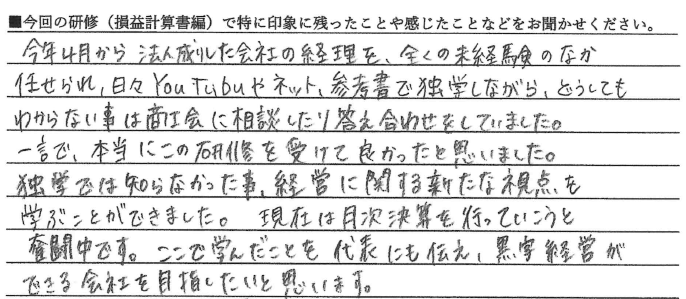 ■今回の研修（損益計算書編）で特に印象に残ったことや感じたことなどをお聞かせください。
今年4月から 法人成りした会社の経理を、全くの未経験のなか
任せられ、日々YouTubuやネット、参考書で独学しながら、どうしても
わからない事は商工会に相談したり答え合わせをしていました。
一言で、本当にこの研修を受けて良かったと思いました。
独学では知らなかった事、経営に関する新たな視点を
学ぶことができました。 現在は月次決算を行っていこうと
奮闘中です。ここで学んだことを 代表にも伝え、黒字経営が
できる会社を目指したいと思います。